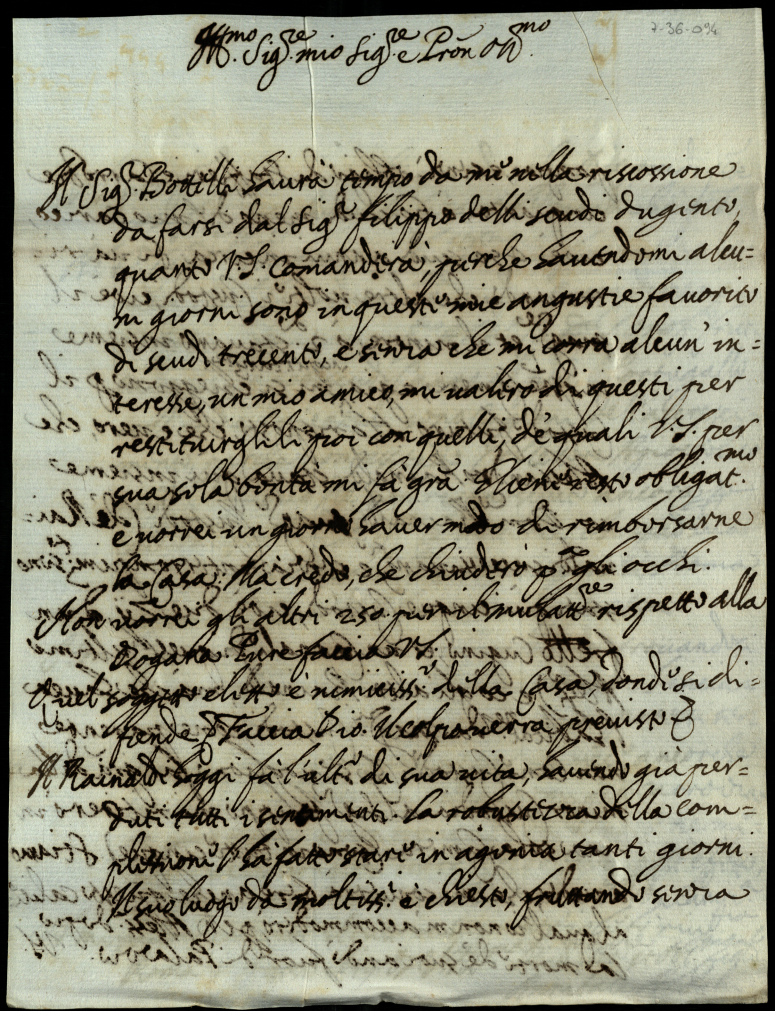 7-36-094
Ill.mo Sig.re mio Sig.re e Pron Oss.mo
Il Sig.r Bottelli haurà tempo da me nella riscossione
da farsi dal Sig.r Filippo delli scudi dugento,
quanto V.S. comanderà, perche havendomi alcu=
ni giorni sono in queste mie angustie favorito
di scudi trecento, e senza che mi corra alcun' in=
teresse, un mio amico, mi valerò di questi per
restituirglili poi con quelli, de quali V.S. per
sua sola bontà mi fà gra. Gliene resto obligat.mo
e vorrei un giorno haver modo di rimborsarne
la Casa. Ma credo, che chiuderò p.a gli occhi.
Non vorrei gli altri 250 per il mulatt.re rispetto alla
Dogana. Pure faccia V.S.
Quel soggetto eletto è nemiciss.o della Casa, donde si di=
fende p Faccia Dio. Il colpo verrà previsto
Il Rainaldi hoggi fà l'ult.o di sua vita, havendo già per=
duti tutti i sentimenti. La robustezza della com=
plessione l'ha fatto stare in agonia tanti giorni.
Il suo luogo da moltiss.i è chiesto, senza